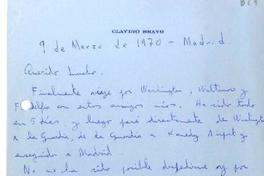 CLAUDIO BRAVO
9 de Marzo de 1970 - Madrid
Querido
Finalmente viaje por Washington, y
en estos amigos míos. Ha sido todo
en 5 días y luego partí directamente de Washington
a la Guardia, de la Guardia a Kennedy Airport y
enseguida a Madrid.
No me ha sido posible despedirme y por